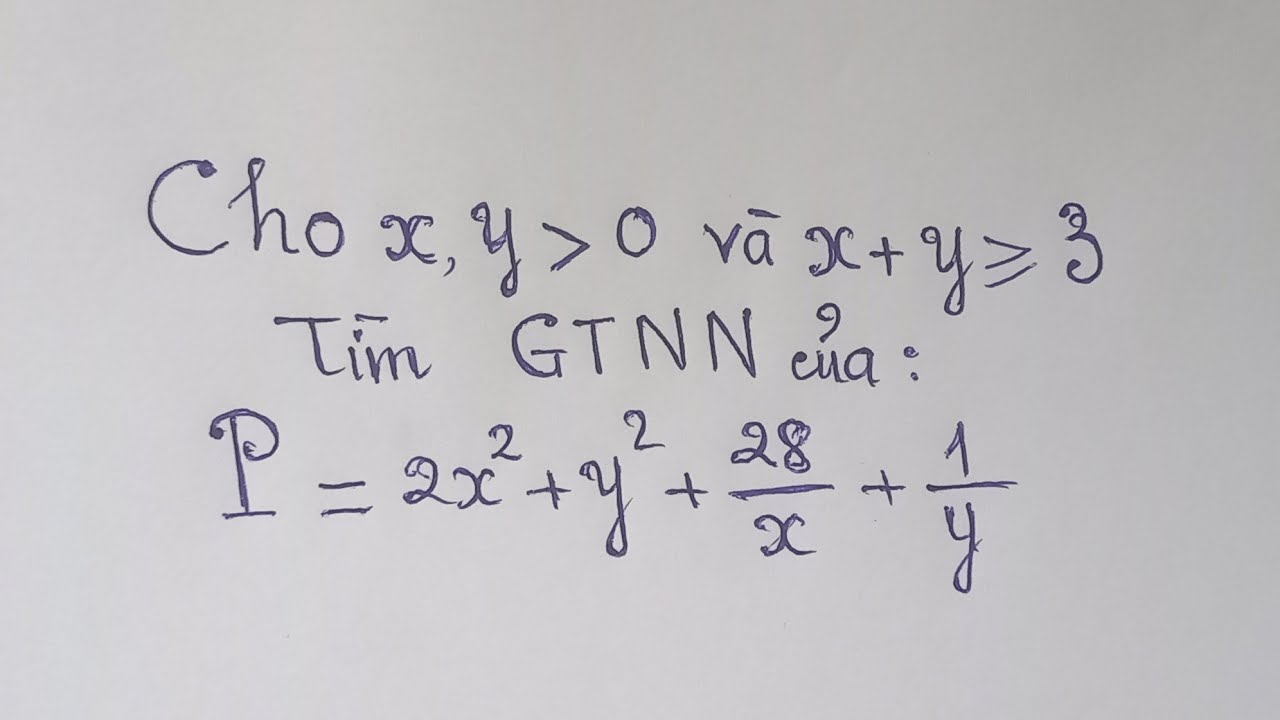 Cho x, y > 0 và x + y ≥ 3
Tìm GTNN của:
P = 2x² + y² + 28/x + 1/y